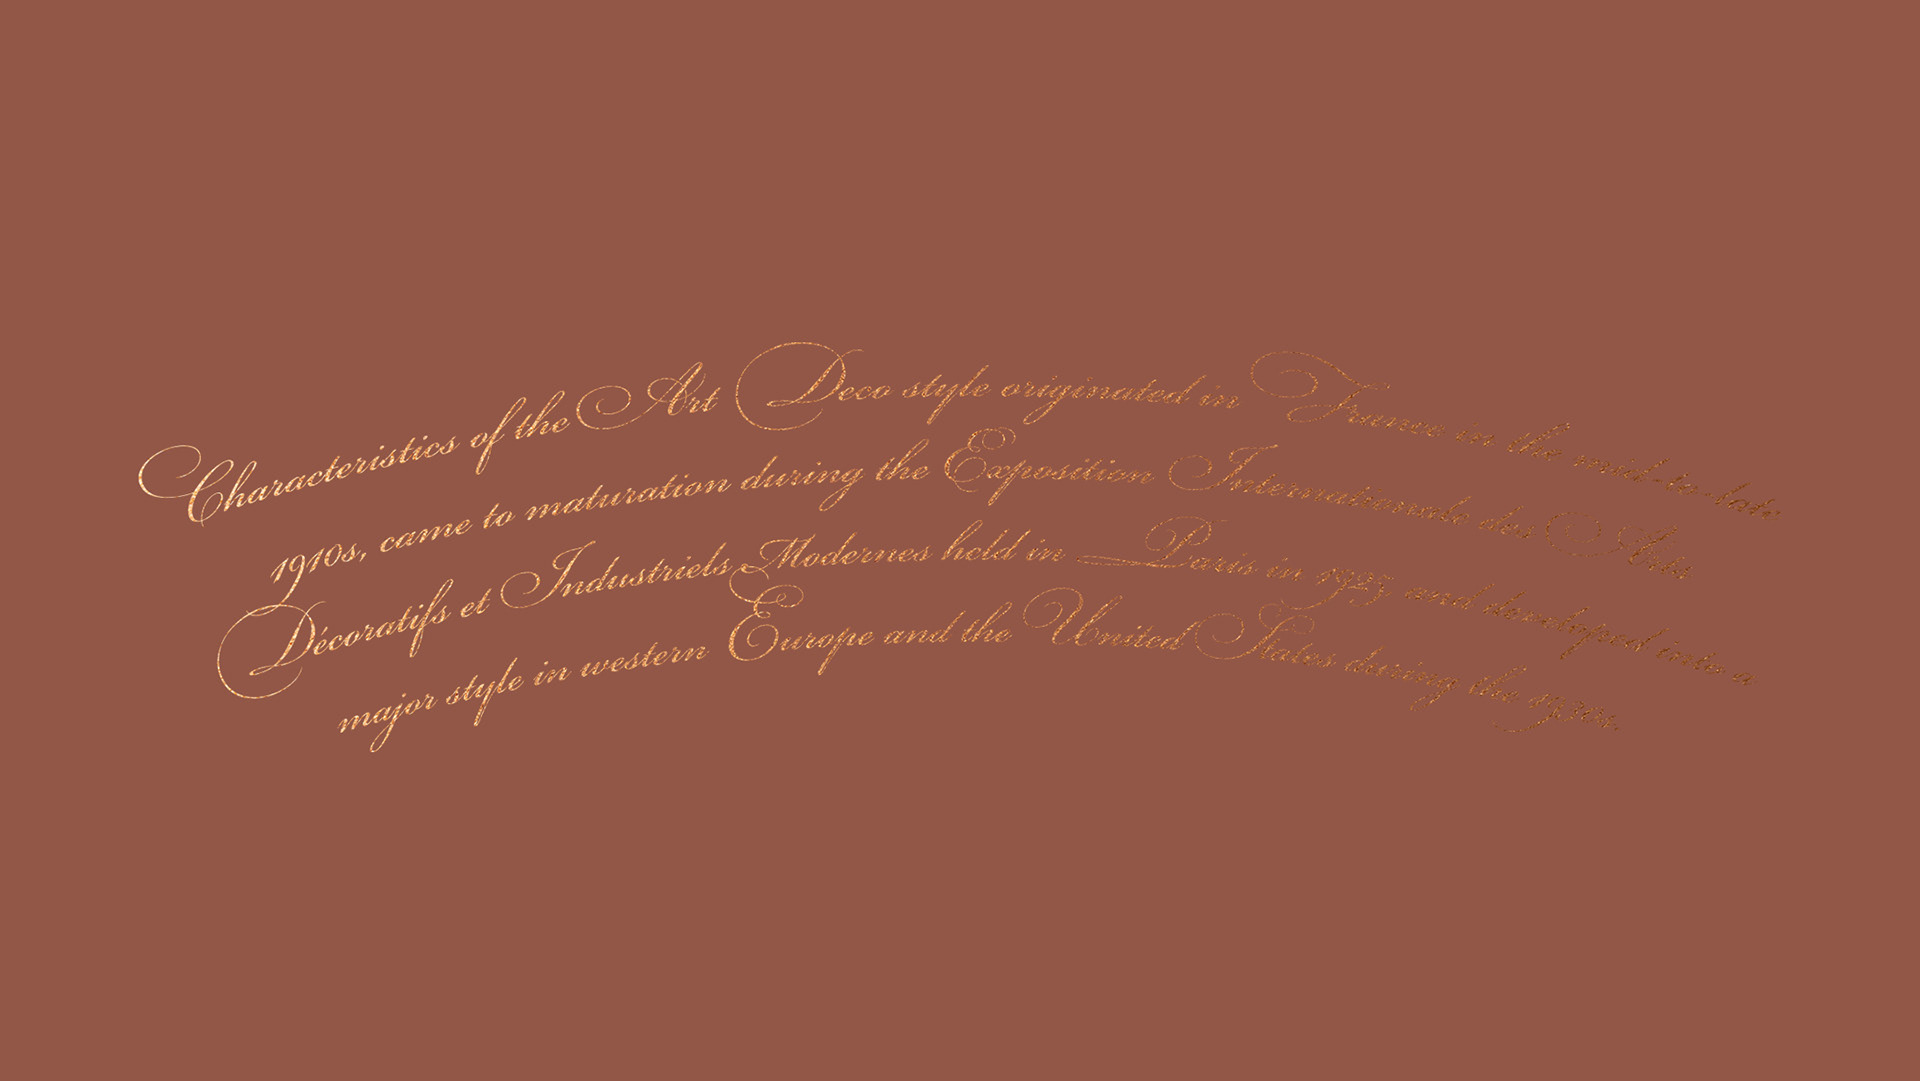 Characteristics of the Art Deco style originated in France in the mid-to-late
1910s, came to maturation during the Exposition Internationale des Arts
Décoratifs et Industriels Modernes held in Paris in 1925 and developed into a
major style in western Europe and the United States during the 1930s.